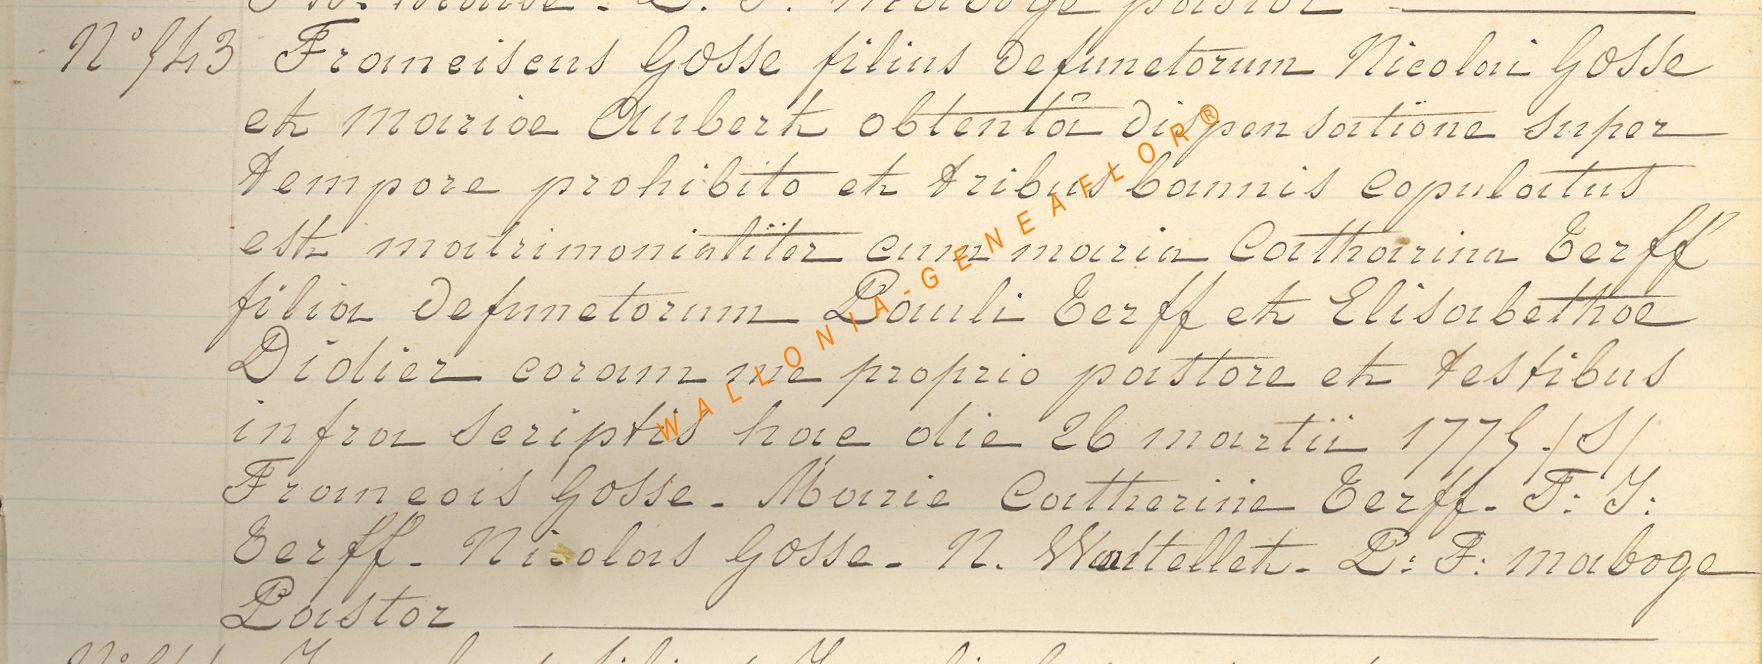 pastor
N° 543 Franciscus Gosse filius defunctorum Nicolai Gosse
et mariae Aubert obtentâ dispensatione super
tempore prohibito et tribus bannis copulatus
est matrimonialiter cum maria Catharina Terff
filia defunctorum Pauli Terff et Elisabethae
Didier coram me proprio pastore et testibus
infra scriptis hac die 26 martii 1775 /S/
Francois Gosse - Marie Catherine Terff - F: J:
Terff - Nicolas Gosse - N. Wattellet - P: F: maboge
Pastor
WALLONIA-GENEAFLOR®